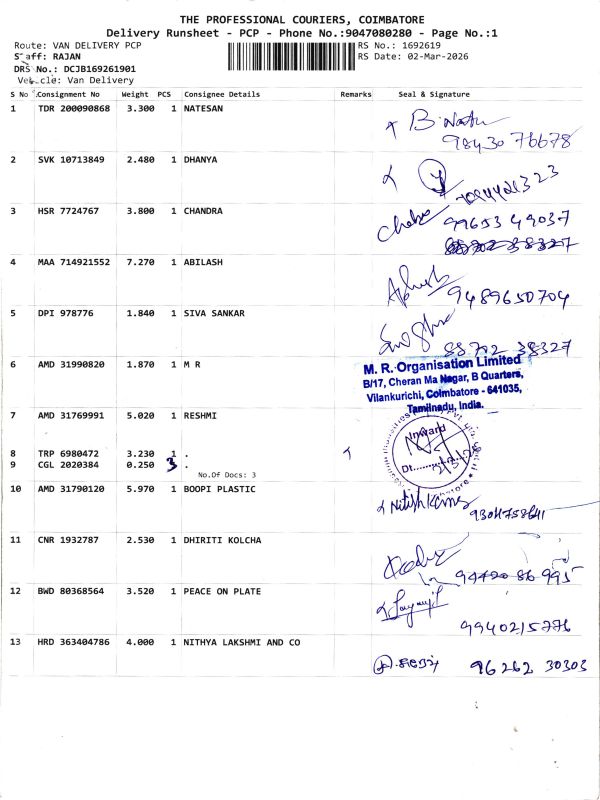 THE PROFESSIONAL COURIERS, COIMBATORE
Delivery Runsheet - PCP - Phone No.:9047080280 - Page No.:1
Route: VAN DELIVERY PCP
RS No.: 1692619
Staff: RAJAN
RS Date: 02-Mar-2026
DRS No.: DCJB169261901
Vehicle: Van Delivery
S No Consignment No Weight PCS Consignee Details Remarks Seal & Signature
1 TDR 200090868 3.300 1 NATESAN
98430 76678
2 SVK 10713849 2.480 1 DHANYA
3 HSR 7724767 3.800 1 CHANDRA
99653 49037
4 MAA 714921552 7.270 1 ABILASH
9489650704
5 DPI 978776 1.840 1 SIVA SANKAR
88702 38327
6 AMD 31990820 1.870 1 M R
M. R. Organisation Limited
B/17, Cheran Ma Nagar, B Quarters,
Vilankurichi, Coimbatore - 641035,
Tamilnadu, India.
7 AMD 31769991 5.020 1 RESHMI
Inward
8 TRP 6980472 3.230 1 .
9 CGL 2020384 0.250 3 .
Dt.
No.Of Docs: 3
10 AMD 31790120 5.970 1 BOOPI PLASTIC
Nitish Kumar
9304758641
11 CNR 1932787 2.530 1 DHIRITI KOLCHA
94420 86 995
12 BWD 80368564 3.520 1 PEACE ON PLATE
9940215776
13 HRD 363404786 4.000 1 NITHYA LAKSHMI AND CO
96262 30303